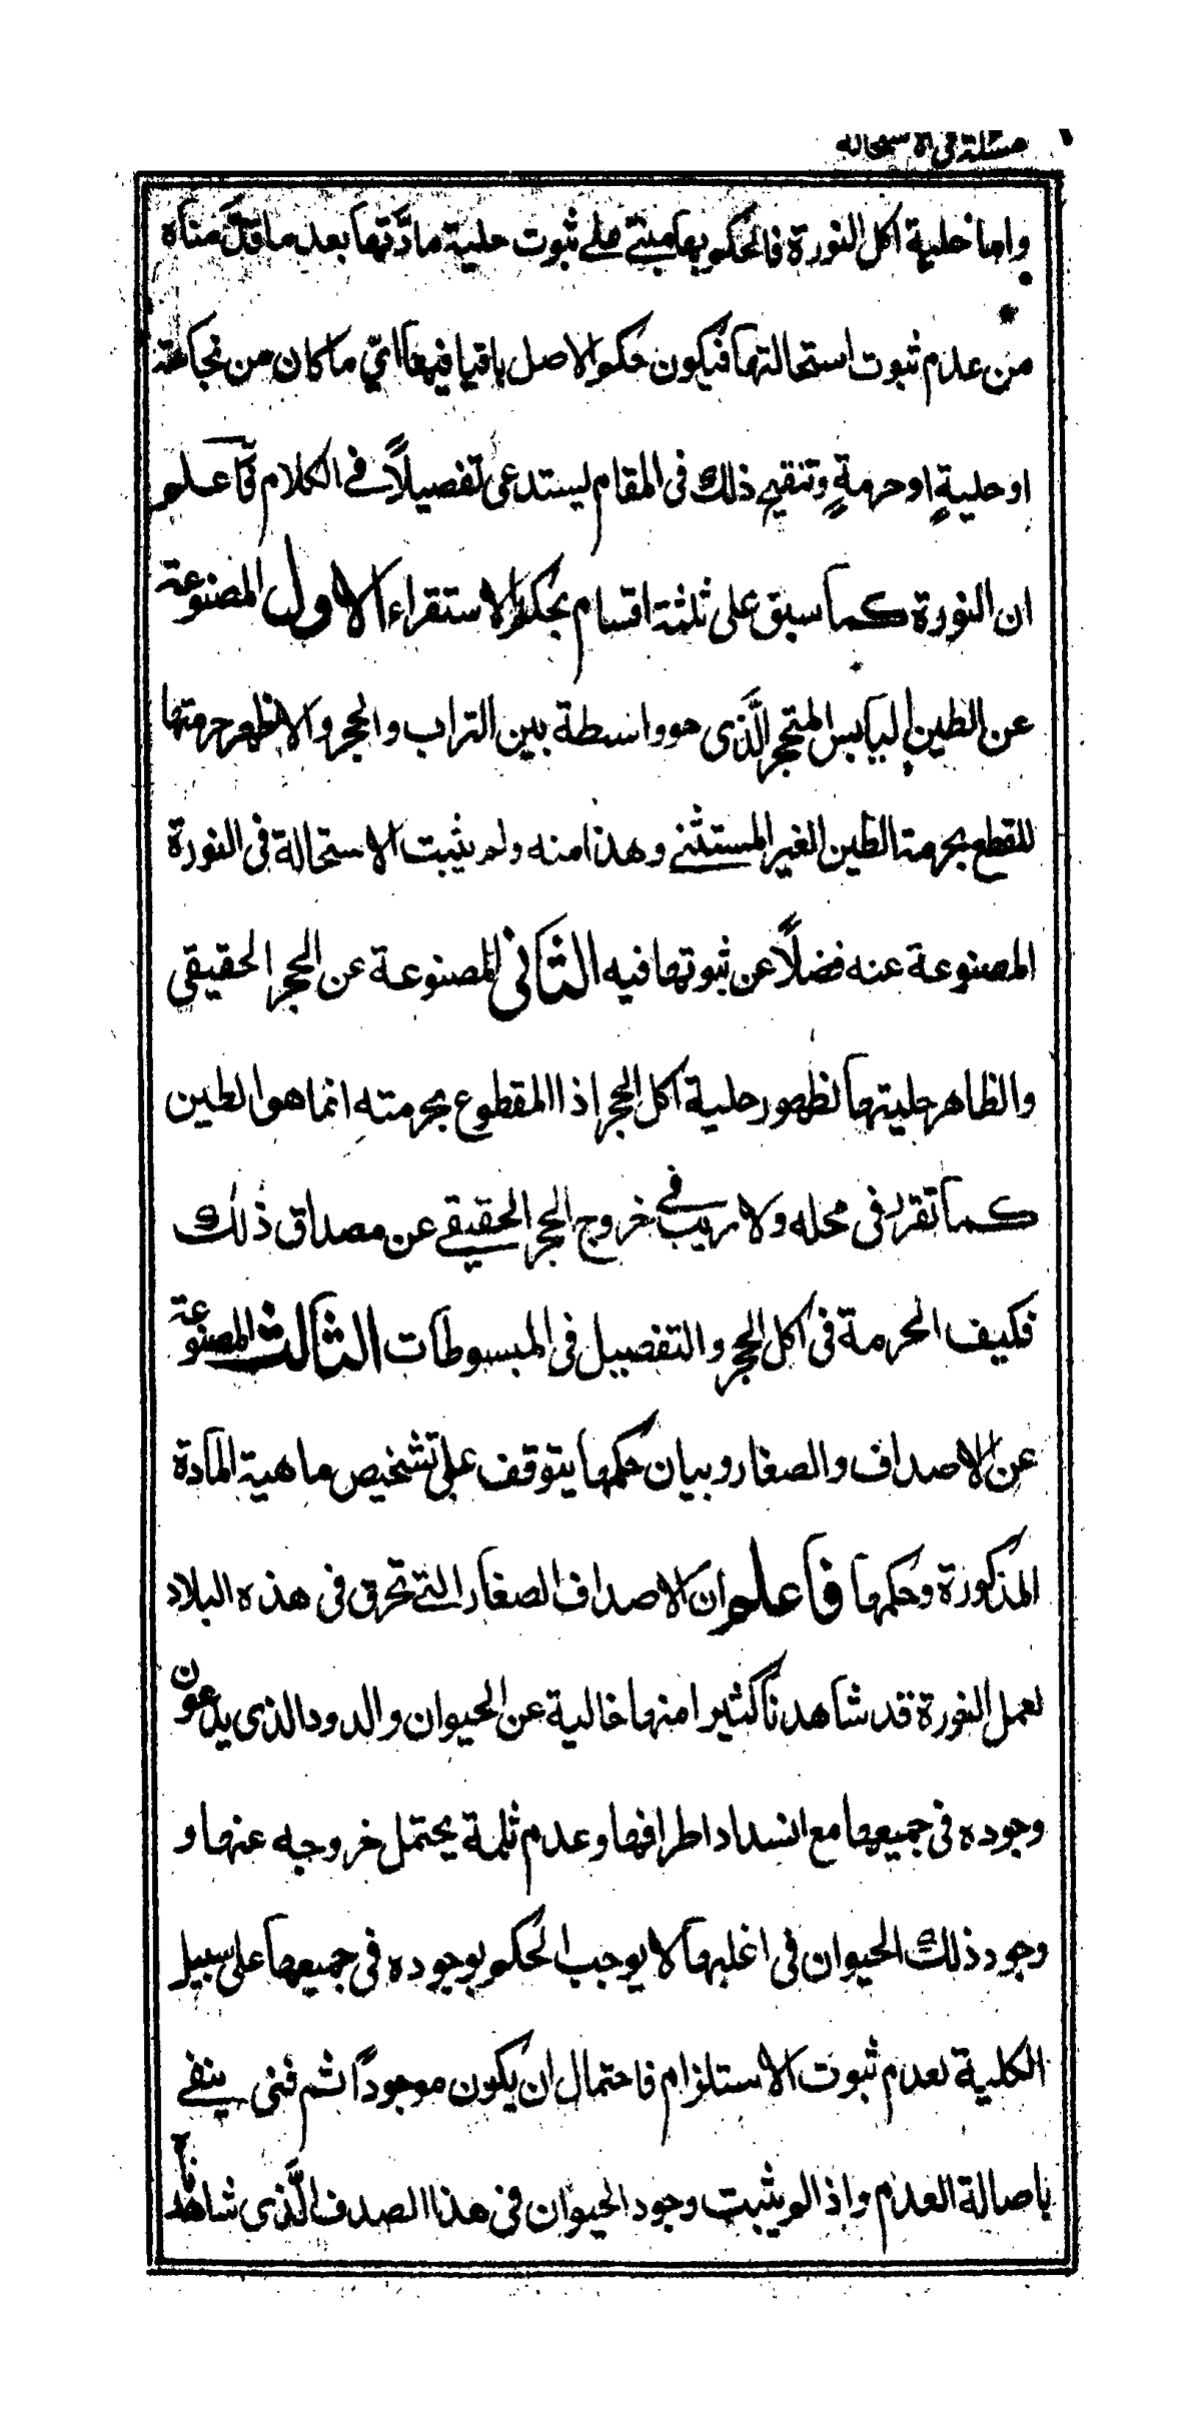 مسئلة في الاستحالة
واما حلية اكل النورة فالحكم بها مبتني على ثبوت حلية مادّتها بعد ما قدّمناه
من عدم ثبوت استحالتها فيكون حكم الاصل باقيا فيها اىّ ما كان من نجاسة
او حليةٍ او حرمةٍ وتنقيح ذلك فى المقام يستدعى تفصيلاً في الكلام فآعلم
ان النورة كما سبق على ثلثة اقسام بحكم الاستقراء الاول المصنوعة
عن الطين اليابس المتحجر الَّذى هو واسطة بين التراب والحجر والاظهر حرمتها
للقطع بحرمة الطين الغير المستثنى وهذا منه ولم يثبت الاستحالة فى النورة
المصنوعة عنه فضلاً عن ثبوتها فيه الثانى المصنوعة عن الحجر الحقيقى
والظاهر حليتها لظهور حلية اكل الحجر اذ المقطوع بحرمته انما هو الطين
كما تقرر فى محله ولا ريب في خروج الحجر الحقيقي عن مصداق ذلك
فكيف الحرمة فى اكل الحجر والتفصيل فى المبسوطات الثالث المصنوعة
عن الاصداف والصغار وبيان حكمها يتوقف على تشخيص ماهية المادة
المذكورة وحكمها فاعلم ان الاصداف الصغار التي تحرق فى هذه البلاد
لعمل النورة قد شاهدنا كثيرا منها خالية عن الحيوان والدود الذى يدعون
وجوده فى جميعها مع انسداد اطرافها وعدم ثلمة يحتمل خروجه عنها و
وجود ذلك الحيوان فى اغلبها لا يوجب الحكم بوجوده فى جميعها على سبيل
الكلية لعدم ثبوت الاستلزام فاحتمال ان يكون موجوداً ثم فنى ينفي
باصالة العدم واذا لم يثبت وجود الحيوان فى هذا الصدف الَّذى شاهدنا